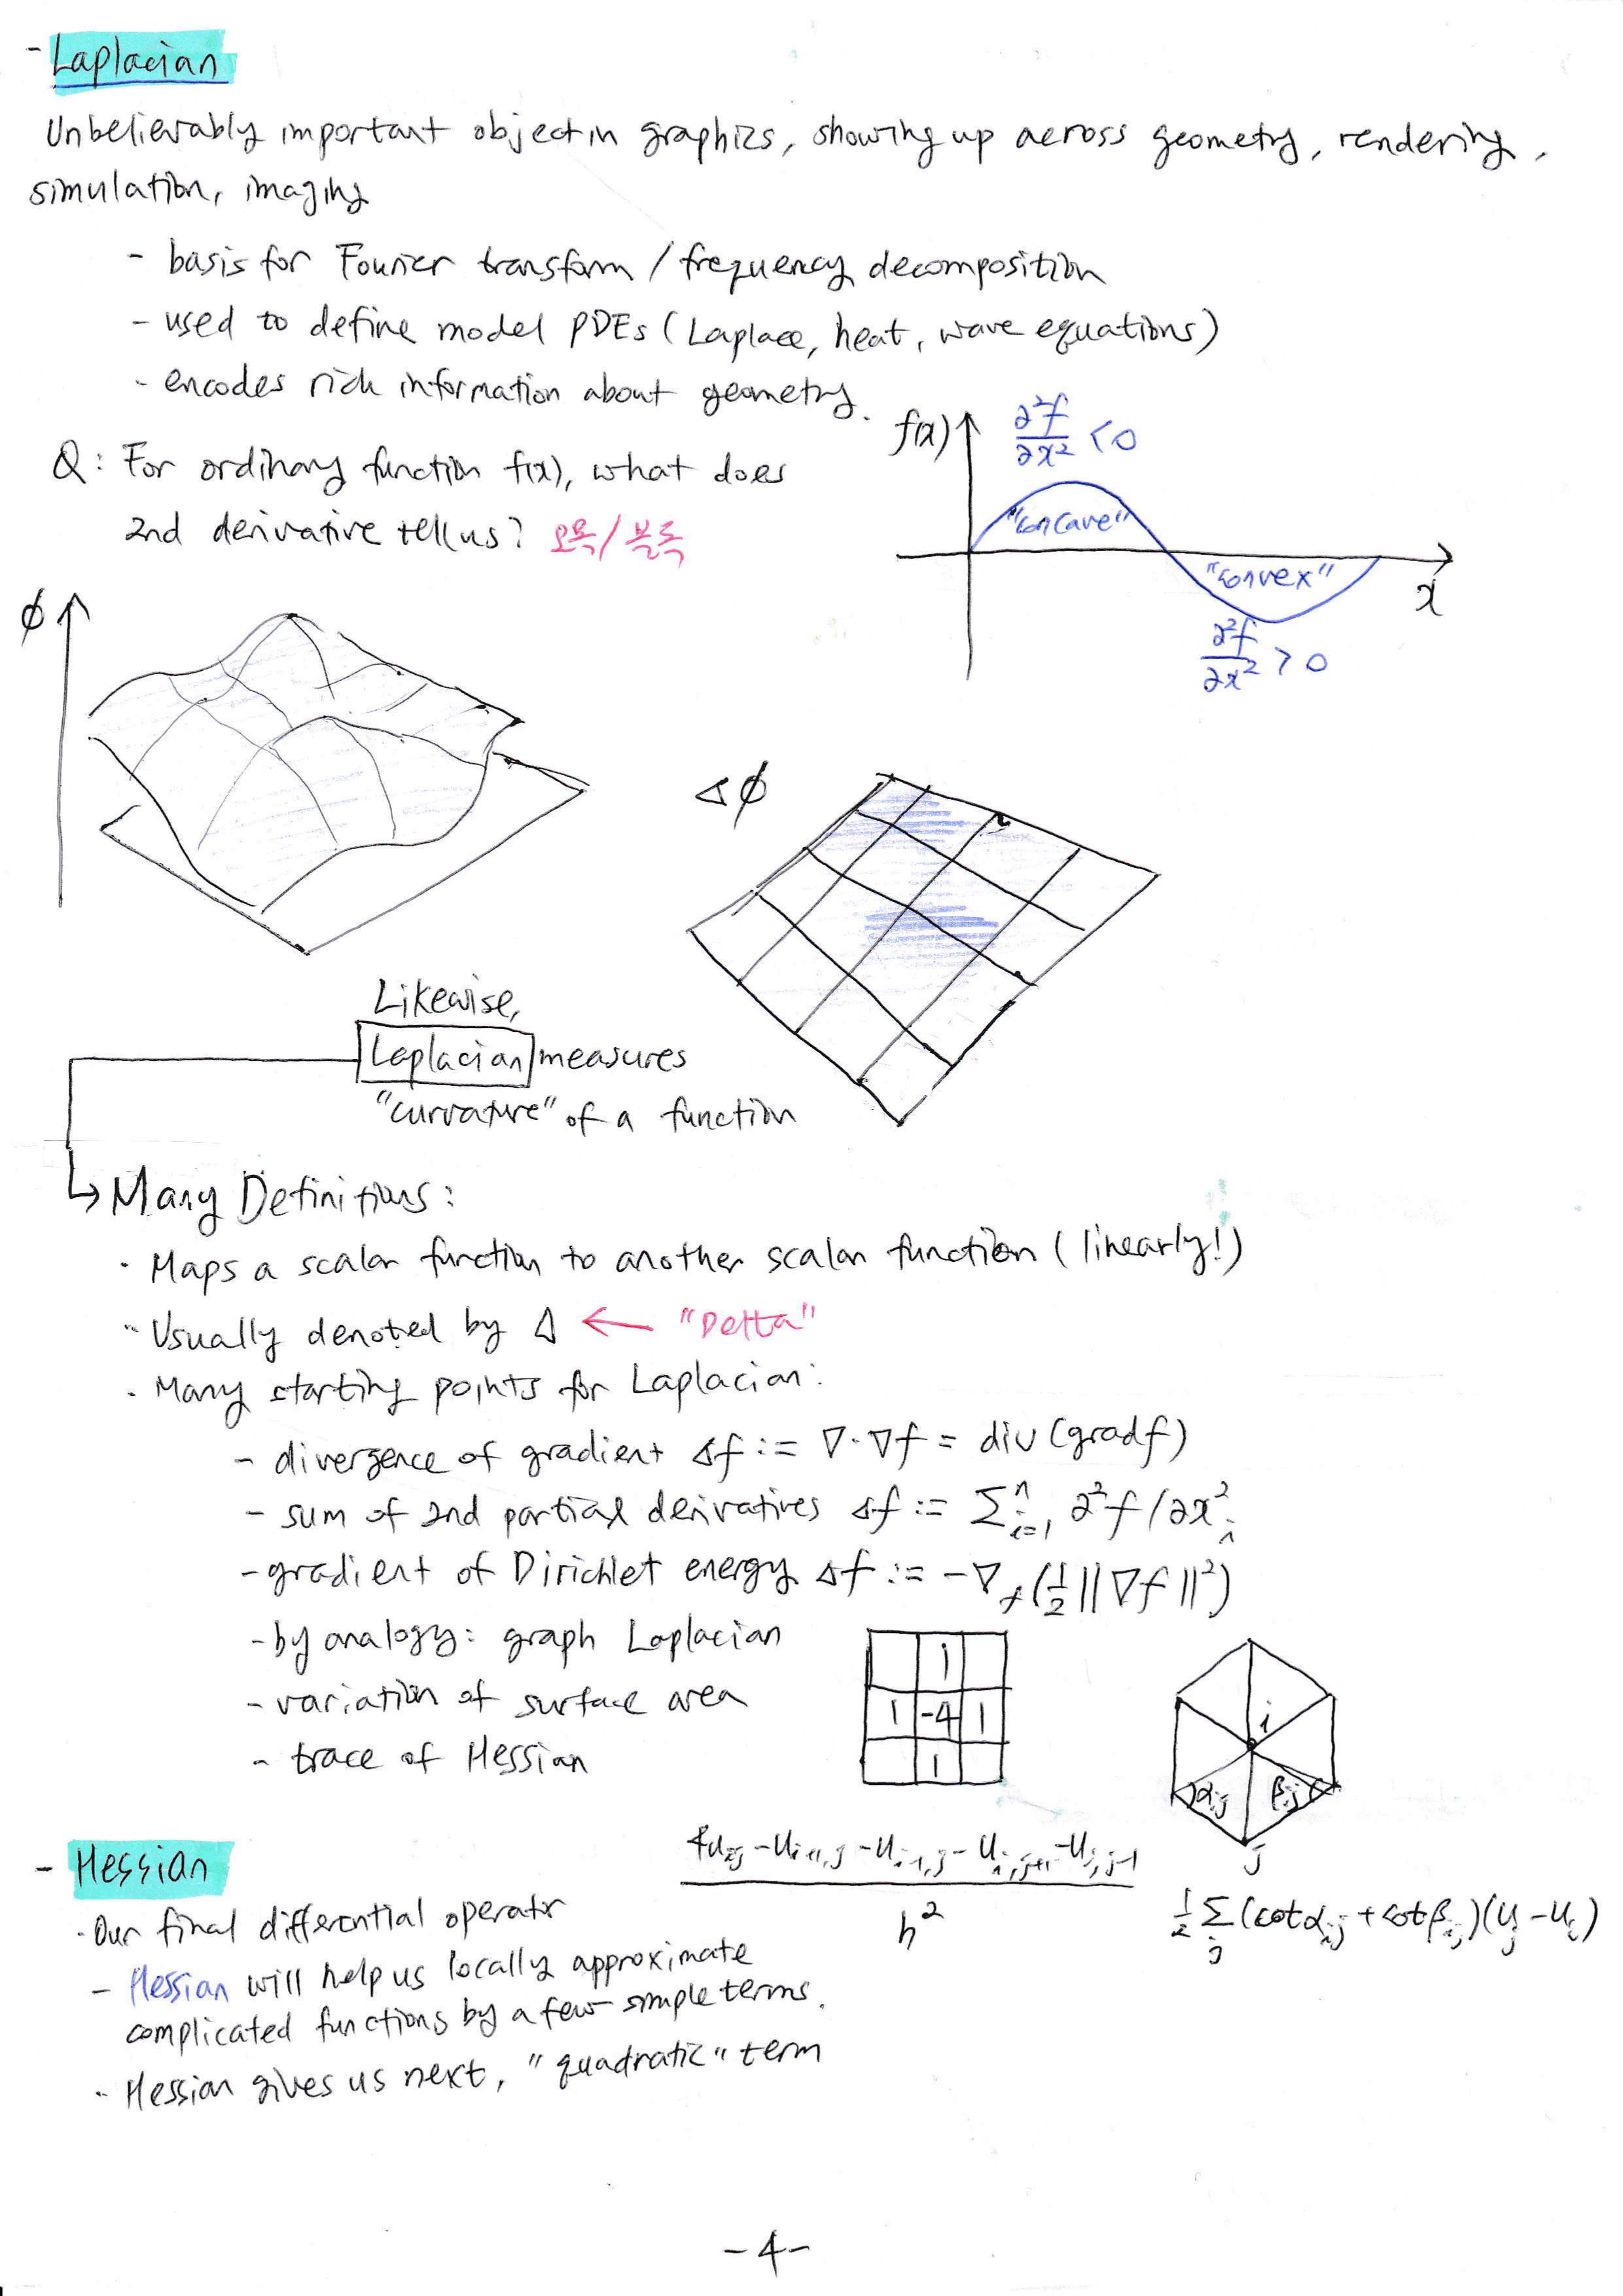 - Laplacian
Unbelievably important object in graphics, showing up across geometry, rendering,
simulation, imaging
- basis for Fourier transform / frequency decomposition
- used to define model PDEs (Laplace, heat, wave equations)
- encodes rich information about geometry.
Q: For ordinary function f(x), what does
2nd derivative tell us? 오목/볼록
f(x)
∂²f/∂x² < 0
"concave"
"convex"
x
∂²f/∂x² > 0
ϕ
Δϕ
Likewise,
Laplacian measures
"curvature" of a function
↳ Many Definitions:
· Maps a scalar function to another scalar function (linearly!)
· Usually denoted by Δ ← "Delta"
· Many starting points for Laplacian:
- divergence of gradient Δf := ∇·∇f = div(grad f)
- sum of 2nd partial derivatives Δf := Σⁿᵢ₌₁ ∂²f/∂x²ᵢ
- gradient of Dirichlet energy Δf := -∇_f(½||∇f||²)
- by analogy: graph Laplacian
- variation of surface area
- trace of Hessian
1
1 -4 1
1
i
αij βij
j
4u_{ij} - u_{i+1,j} - u_{i-1,j} - u_{i,j+1} - u_{i,j-1}
h²
½ Σ_j (cot α_{ij} + cot β_{ij})(u_j - u_i)
- Hessian
· Our final differential operator
- Hessian will help us locally approximate
complicated functions by a few simple terms.
- Hessian gives us next, "quadratic" term
-4-